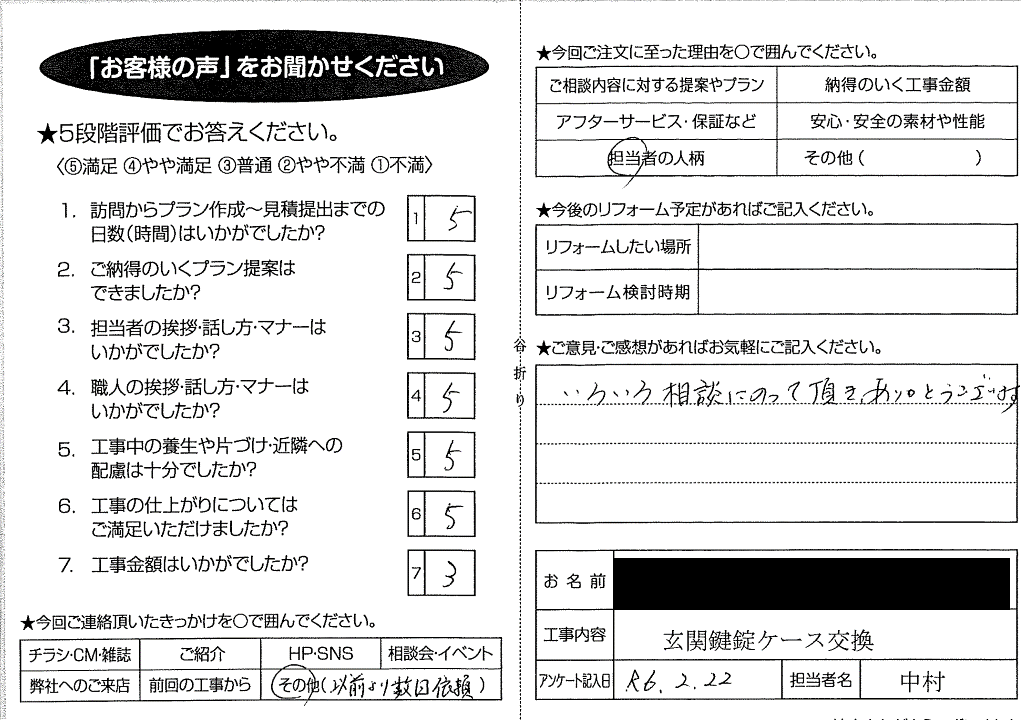 「お客様の声」をお聞かせください
★5段階評価でお答えください。
〈⑤満足 ④やや満足 ③普通 ②やや不満 ①不満〉
1. 訪問からプラン作成～見積提出までの
日数(時間)はいかがでしたか?
1 5
2. ご納得のいくプラン提案は
できましたか?
2 5
3. 担当者の挨拶・話し方・マナーは
いかがでしたか?
3 5
4. 職人の挨拶・話し方・マナーは
いかがでしたか?
4 5
5. 工事中の養生や片づけ・近隣への
配慮は十分でしたか?
5 5
6. 工事の仕上がりについては
ご満足いただけましたか?
6 5
7. 工事金額はいかがでしたか?
7 3
★今回ご連絡頂いたきっかけを○で囲んでください。
チラシ・CM・雑誌 ご紹介 HP・SNS 相談会・イベント
弊社へのご来店 前回の工事から その他(以前より数回依頼)
谷折り
★今回ご注文に至った理由を○で囲んでください。
ご相談内容に対する提案やプラン 納得のいく工事金額
アフターサービス・保証など 安心・安全の素材や性能
担当者の人柄 その他( )
★今後のリフォーム予定があればご記入ください。
リフォームしたい場所
リフォーム検討時期
★ご意見・ご感想があればお気軽にご記入ください。
いろいろ相談にのって頂き、ありがとうございます
お名前
工事内容 玄関鍵錠ケース交換
アンケート記入日 R6.2.22 担当者名 中村